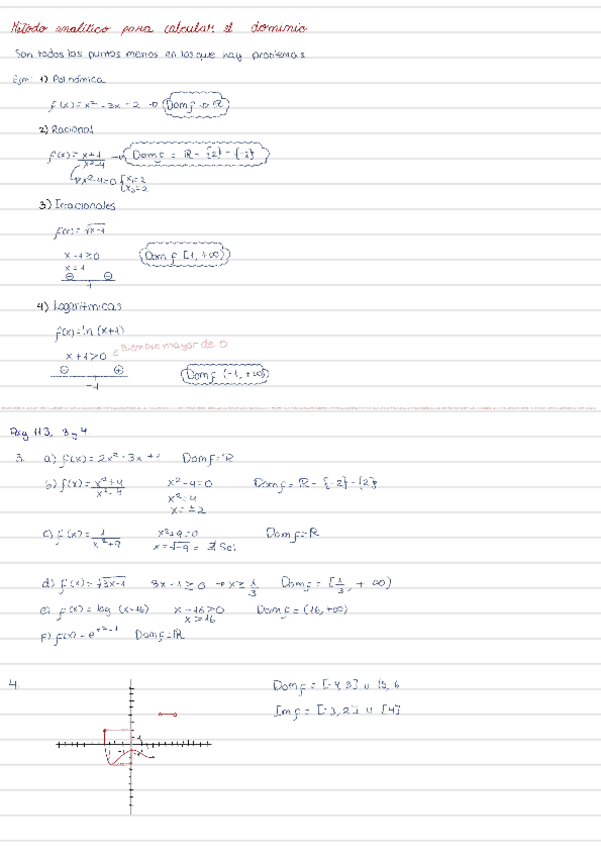 Método analítico para calcular el dominio
Son todos los puntos menos en los que hay problemas
Ejm: 1) Polinómica
f(x) = x² - 3x - 2 → Dom f → ℝ
2) Racional
f(x) = x+1/x²-4 → Dom f = ℝ - {2} - {-2}
x²-4=0
3) Irracionales
f(x) = √x-1
x-1≥0 Dom f [1, +∞)
x=1
1
4) Logarítmicas
f(x) = ln (x+1)
x+1>0 siempre mayor de 0
Dom f (-1, +∞)
-1
Pag 113, 3 y 4
3. a) f(x) = 2x² - 3x + Dom f = ℝ
b) f(x) = x²+4/x²-4 x²-4=0 Dom f = ℝ - {-2} - {2}
x²=4
x=±2
c) f(x) = 1/x²+9 x²+9=0 Dom f = ℝ
x=√-9 = ∄ Sol
d) f(x) = √3x-1 3x-1≥0 → x≥ 1/3 Dom f = [1/3, +∞)
e) f(x) = log (x-16) x-16>0 Dom f = (16, +∞)
x>16
f) f(x) = e^x²-1 Dom f = ℝ
4. Dom f = [-4, 3] ∪ [5, 6
Im f = [-3, 2] ∪ [4]